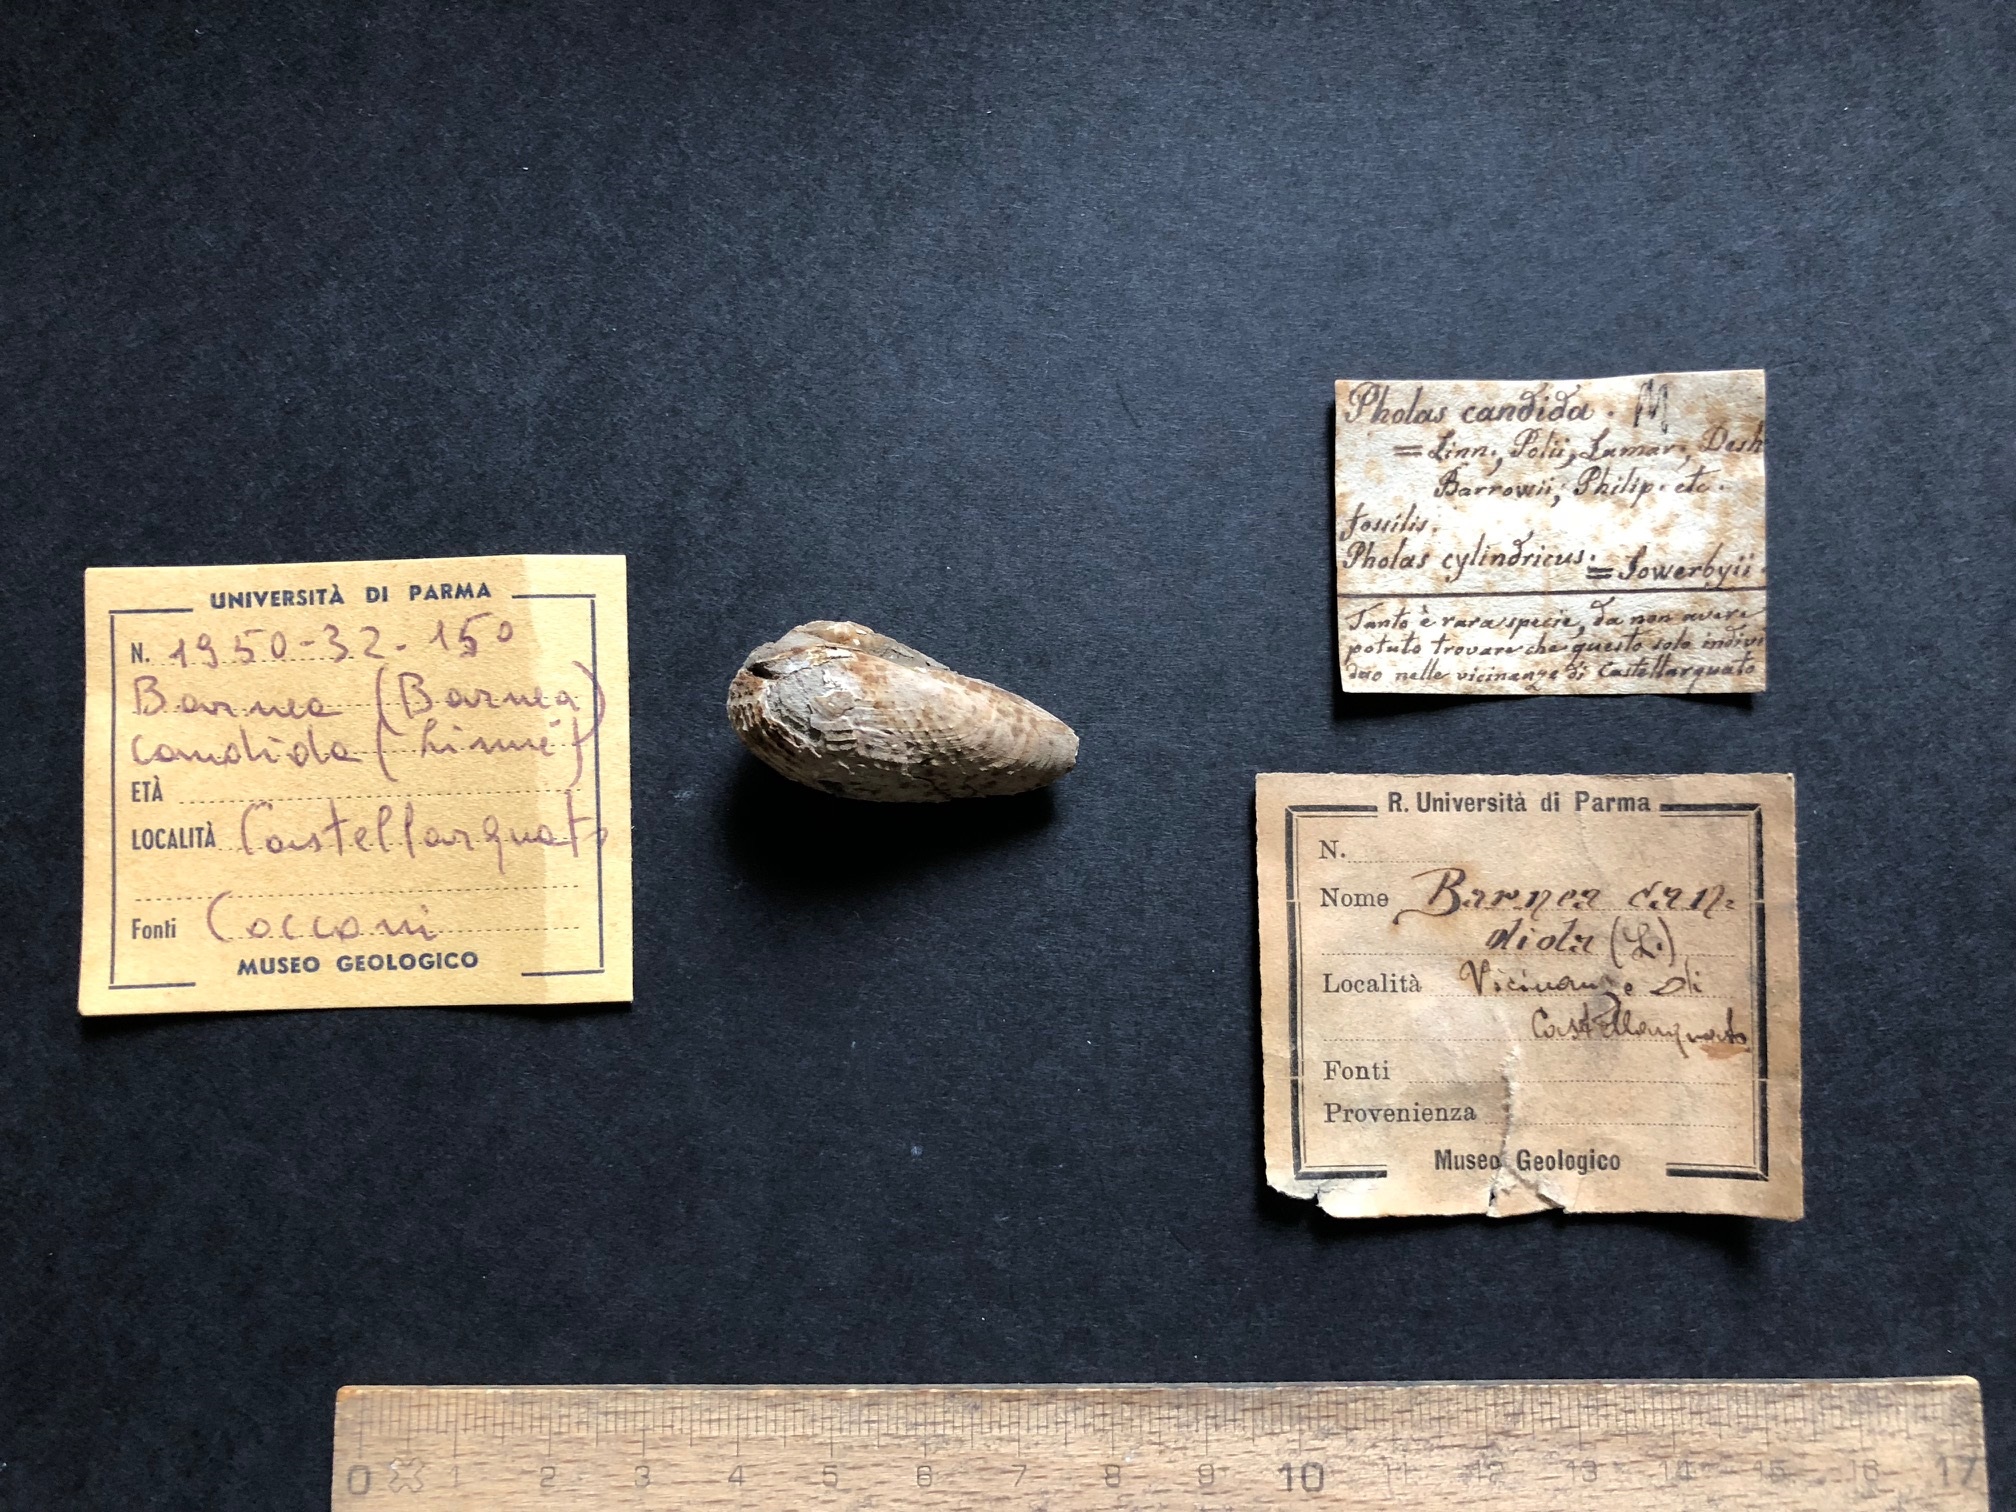 UNIVERSITÀ DI PARMA
N. 1950-32-150
Barnea (Barnea)
candida (Linné)
ETÀ
LOCALITÀ Castellarquato
Fonti Cocconi
MUSEO GEOLOGICO
Pholas candida. M
= Linn., Polii, Lamar., Desh
Barrowii; Philip. etc.
fossilis.
Pholas cylindricus. = Sowerbyii.
Tanto è rara specie, da non avere
potuto trovare che questo solo indivi
duo nelle vicinanze di Castellarquato
R. Università di Parma
N.
Nome Barnea can=
dida (L.)
Località Vicinanze di
Castellarquato
Fonti
Provenienza
Museo Geologico
0 1 2 3 4 5 6 7 8 9 10 11 12 13 14 15 16 17